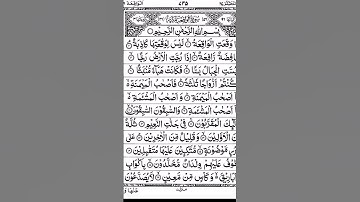 ٧٣٥
بِسْمِ اللهِ الرَّحْمٰنِ الرَّحِيْمِ
وَقَعَتِ الْوَاقِعَةُ لَيْسَ لِوَقْعَتِهَا كَاذِبَةٌ
فِضَةٌ رَّافِعَةٌ اِذَا رُجَّتِ الْاَرْضُ رَجًّا
سَّتِ الْجِبَالُ بَسًّا فَكَانَتْ هَبَآءً مُّنْۢبَثًّا
كُنْتُمْ اَزْوَاجًا ثَلٰثَةً فَاَصْحٰبُ الْمَيْمَنَةِ
اَصْحٰبُ الْمَيْمَنَةِ وَاَصْحٰبُ الْمَشْـَٔمَةِ
اَصْحٰبُ الْمَشْـَٔمَةِ وَالسّٰبِقُوْنَ السّٰبِقُوْنَ
كَ الْمُقَرَّبُوْنَ فِيْ جَنّٰتِ النَّعِيْمِ ثُلَّةٌ
الْاَوَّلِيْنَ وَقَلِيْلٌ مِّنَ الْاٰخِرِيْنَ عَلٰى
مَّوْضُوْنَةٍ مُّتَّكِـِٕيْنَ عَلَيْهَا مُتَقٰبِلِيْنَ
وْفُ عَلَيْهِمْ وِلْدَانٌ مُّخَلَّدُوْنَ بِاَكْوَابٍ
بَارِيْقَ وَكَاْسٍ مِّنْ مَّعِيْنٍ لَا يُصَدَّعُوْنَ
عَنْهَا